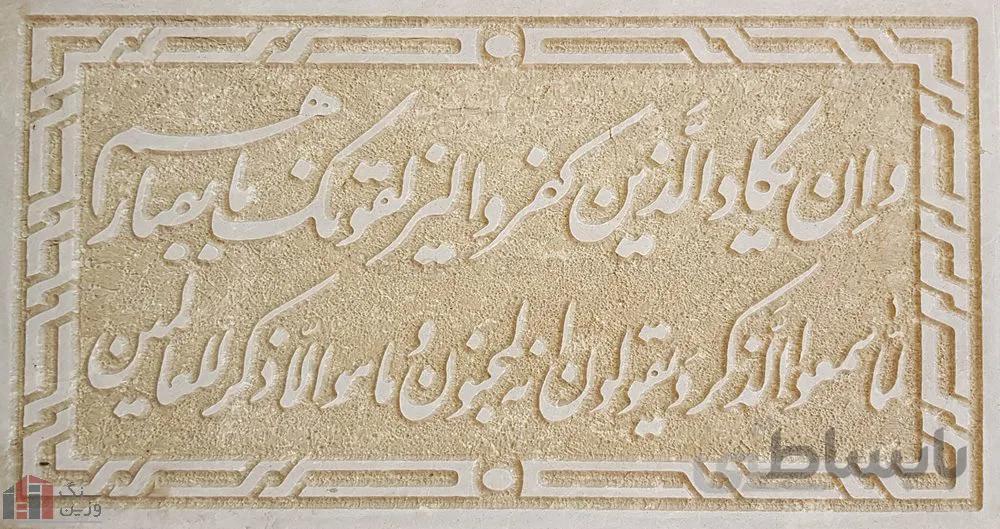 وان یکاد الذین کفروا لیزلقونک بابصارهم
لما سمعوا الذکر و یقولون انه لمجنون و ما هو الا ذکر للعالمین
باسلط
سنگ
ورین